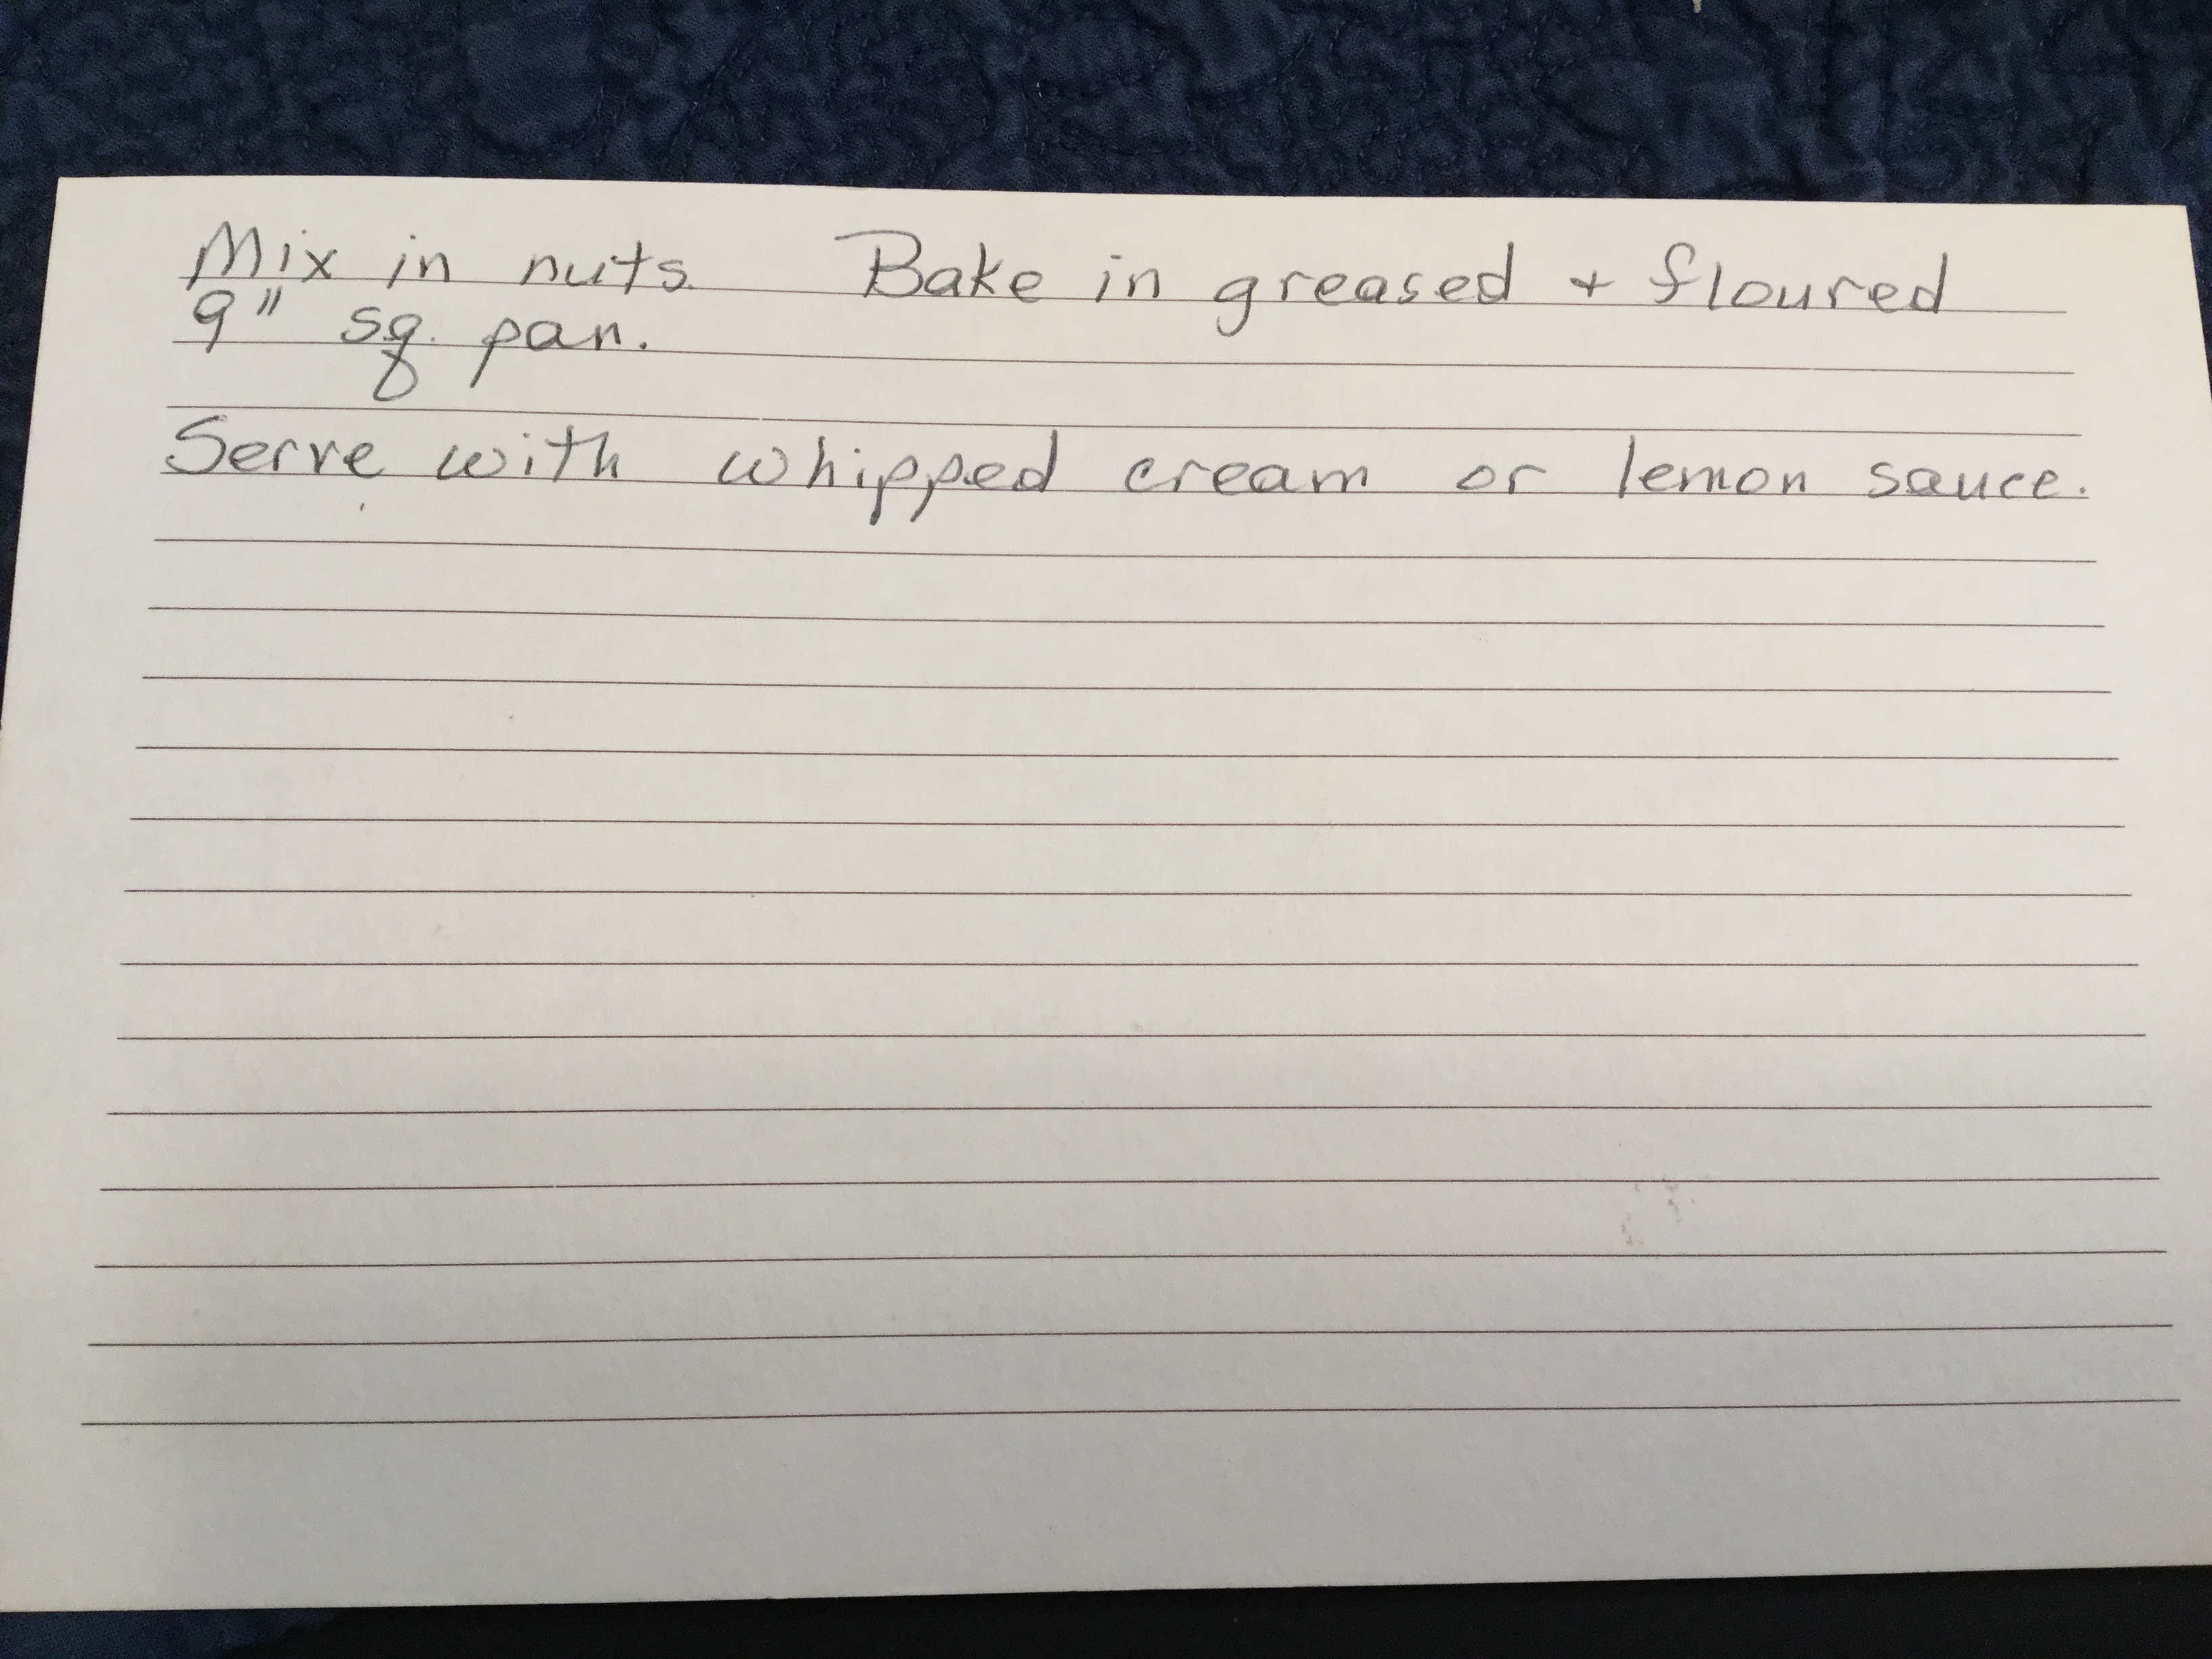 Mix in nuts. Bake in greased + floured
9" sq. pan.
Serve with whipped cream or lemon sauce.